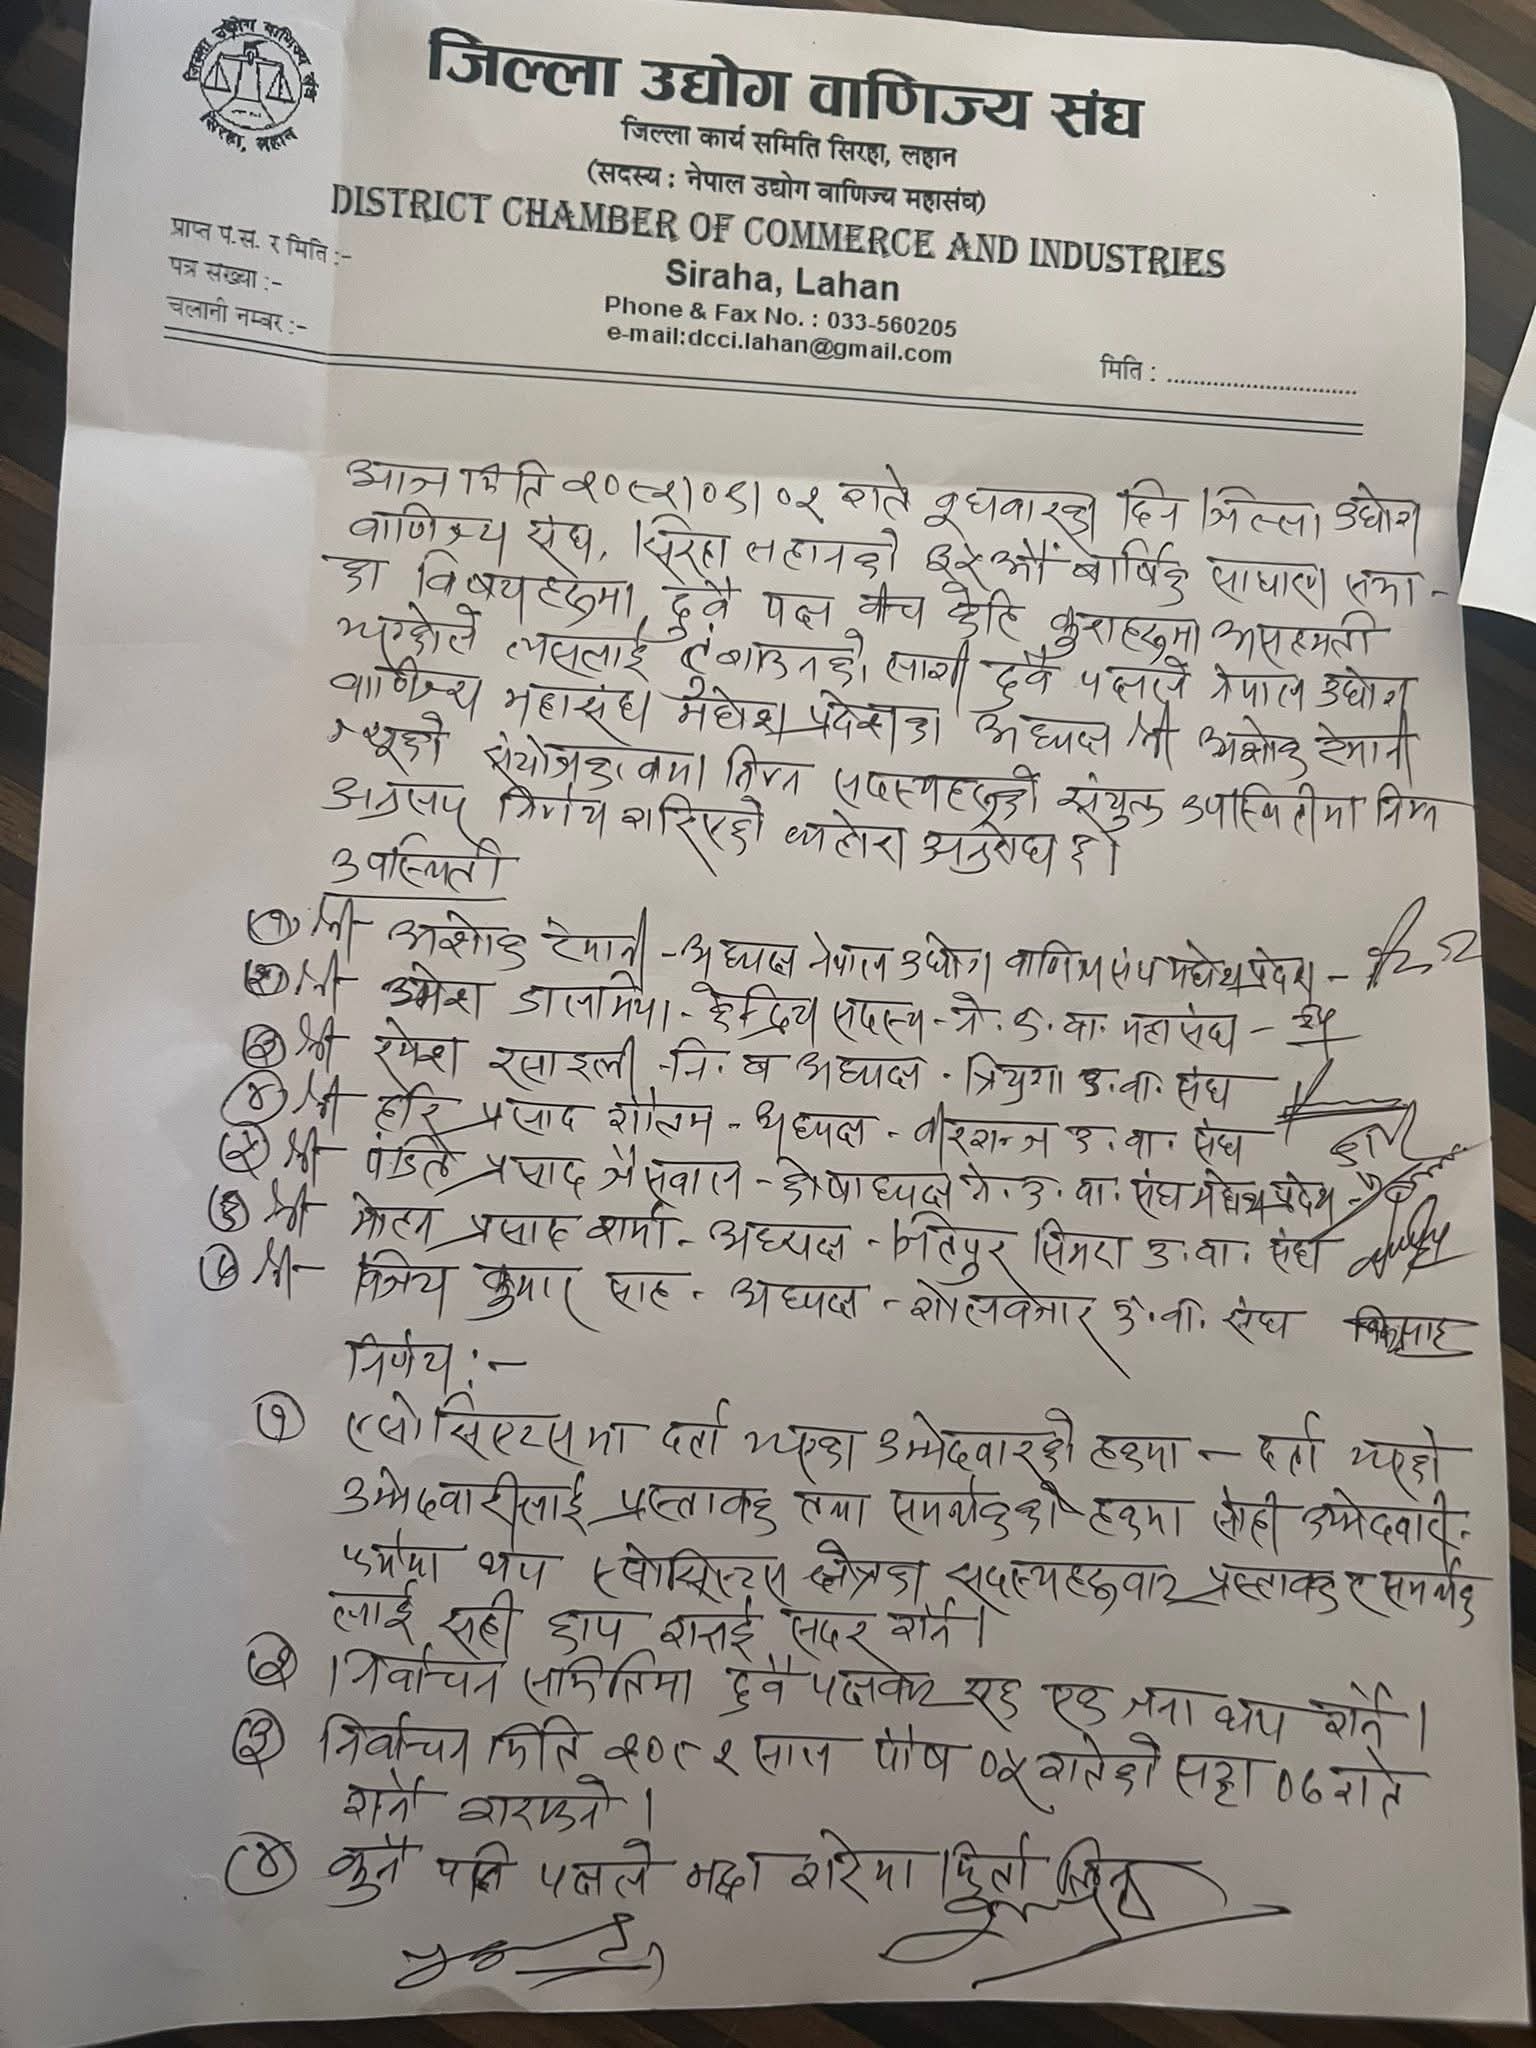 जिल्ला उद्योग वाणिज्य संघ
सिरहा, लहान
जिल्ला उद्योग वाणिज्य संघ
जिल्ला कार्य समिति सिरहा, लहान
(सदस्य : नेपाल उद्योग वाणिज्य महासंघ)
DISTRICT CHAMBER OF COMMERCE AND INDUSTRIES
Siraha, Lahan
Phone & Fax No. : 033-560205
e-mail:dcci.lahan@gmail.com
प्राप्त प.स. र मिति :-
पत्र संख्या :-
चलानी नम्बर :-
मिति : ..............................
आज मिति २०८२।०९।०२ गते बुधवारका दिन जिल्ला उद्योग
वाणिज्य संघ, सिरहा लहानको ३२ औं बार्षिक साधारण सभा -
का विषयहरुमा दुवै पक्ष बीच केहि कुराहरुमा असहमती
भएकोले त्यसलाई टुंगाउनको लागी दुवै पक्षले नेपाल उद्योग
वाणिज्य महासंघ मधेश प्रदेशका अध्यक्ष श्री अशोक टेमानी
ज्यूको संयोजकत्वमा निम्न सदस्यहरुको संयुक्त उपस्थितीमा निम्न
अनुसार निर्णय गरिएको व्यहोरा अनुरोध छ।
उपस्थिती
(१) श्री अशोक टेमानी - अध्यक्ष नेपाल उद्योग वाणिज्य संघ मधेश प्रदेश -
(२) श्री उमेश डालमिया - केन्द्रिय सदस्य - ने. उ. वा. महासंघ -
(३) श्री रमेश रसाइली - नि. व अध्यक्ष - त्रियुगा उ. वा. संघ
(४) श्री हरि प्रसाद गौतम - अध्यक्ष - वीरगन्ज उ. वा. संघ
(५) श्री पंडित प्रसाद जैसवाल - कोषाध्यक्ष ने. उ. वा. संघ मधेश प्रदेश -
(६) श्री मोहन प्रसाद शर्मा - अध्यक्ष - जितपुर सिमरा उ. वा. संघ
(७) श्री विजय कुमार साह - अध्यक्ष - गोलबजार उ. वा. संघ
निर्णय :-
(१) एसोसिएटसमा दर्ता भएका उम्मेदवारको हकमा - दर्ता भएको
उम्मेदवारीलाई प्रस्तावक तथा समर्थकको हकमा सोही उम्मेदवारी -
फर्ममा थप एसोसिएटस क्षेत्रका सदस्यहरुबाट प्रस्तावक र समर्थक
लाई सही छाप गराई सदर गर्ने।
(२) निर्वाचन समितिमा दुवै पक्षबाट एक एक जना थप गर्ने।
(३) निर्वाचन मिति २०८२ साल पौष ०५ गतेको सट्टा ०७ गते
गर्ने गराउने।
(४) कुनै पनि पक्षले मुद्दा गरेमा फिर्ता लिने